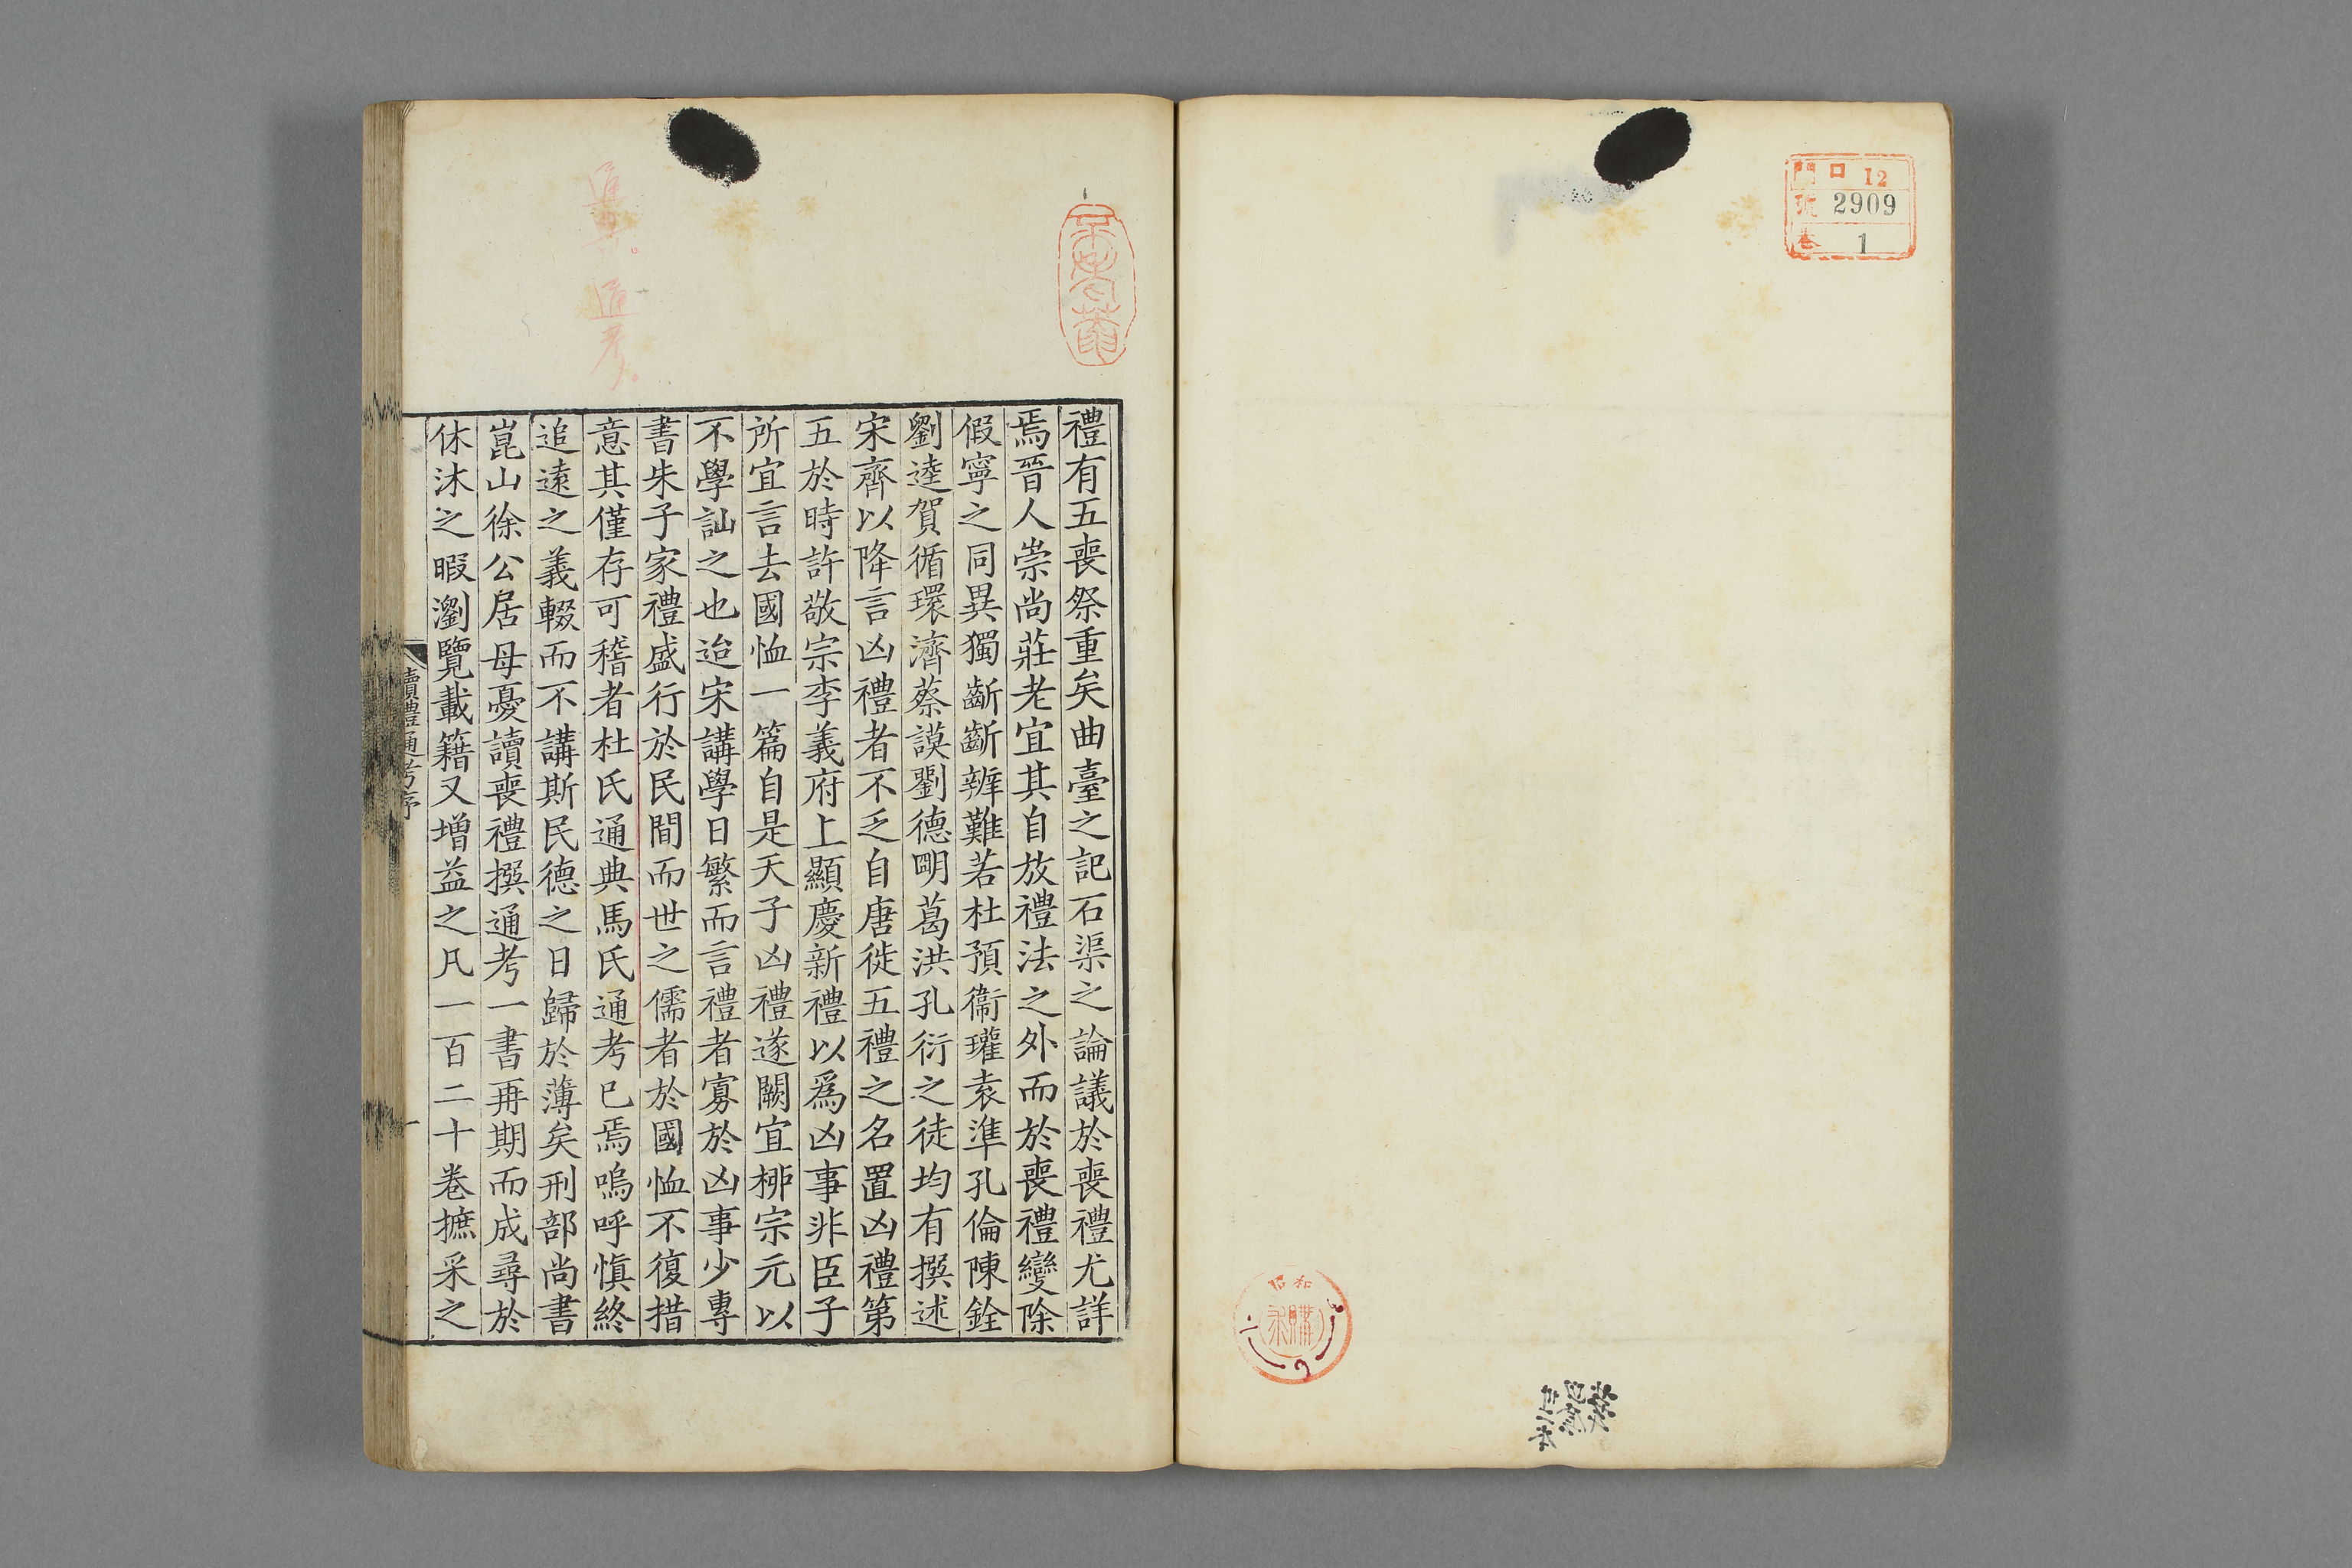 門 口 12
號 2909
卷 1
昭和
購求
禮有五喪祭重矣曲臺之記石渠之論議於喪禮尤詳
焉晉人崇尚莊老宜其自放禮法之外而於喪禮變除
假寧之同異獨齗齗辨難若杜預衞瓘袁準孔倫陳銓
劉逵賀循環濟蔡謨劉德明葛洪孔衍之徒均有撰述
宋齊以降言凶禮者不乏自唐徙五禮之名置凶禮第
五於時許敬宗李義府上顯慶新禮以爲凶事非臣子
所宜言去國恤一篇自是天子凶禮遂闕宜桺宗元以
不學訕之也迨宋講學日繁而言禮者寡於凶事少專
書朱子家禮盛行於民間而世之儒者於國恤不復措
意其僅存可稽者杜氏通典馬氏通考已焉嗚呼愼終
追遠之義輟而不講斯民德之日歸於薄矣刑部尚書
崑山徐公居母憂讀喪禮撰通考一書再期而成尋於
休沐之暇瀏覽載籍又增益之凡一百二十卷摭采之
讀禮通考序
一
通考。